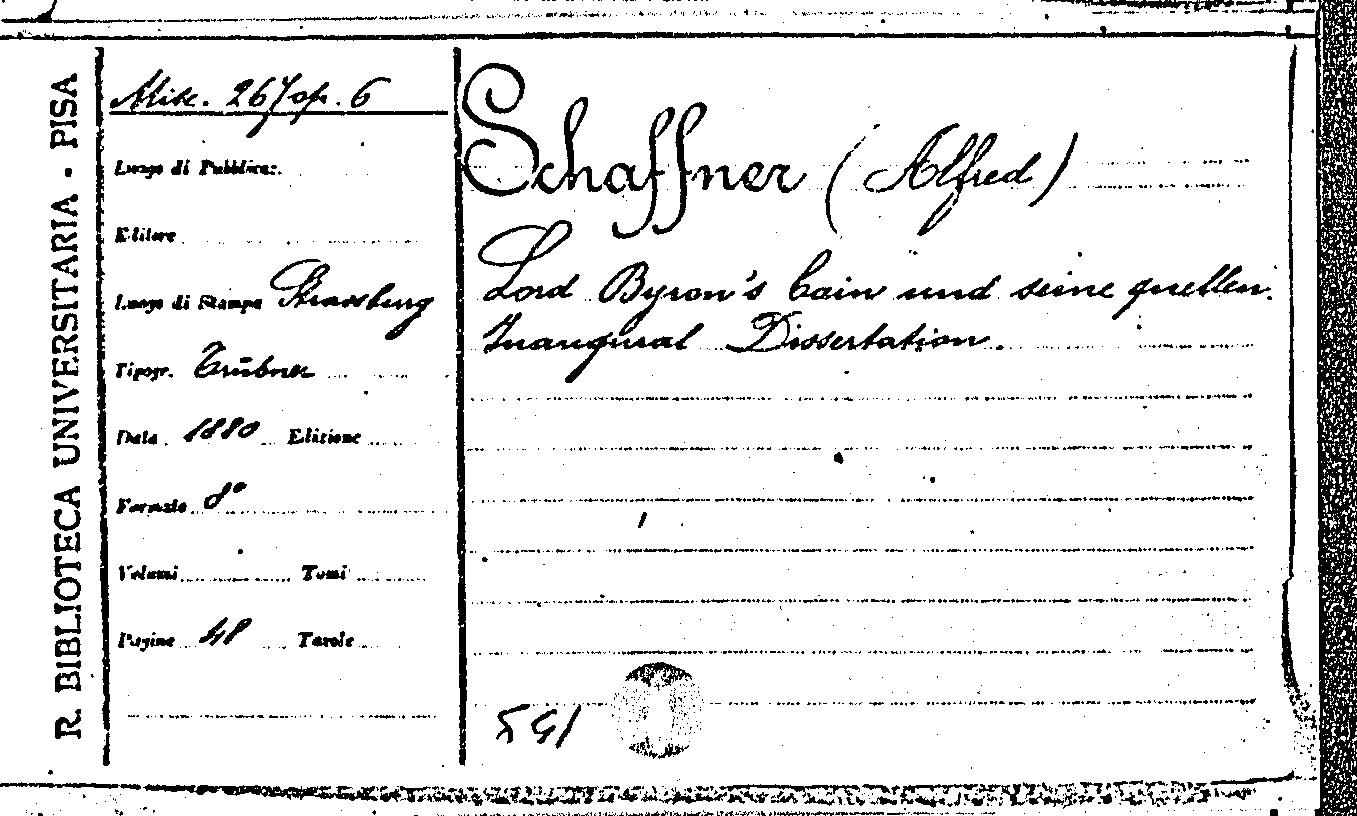 R. BIBLIOTECA UNIVERSITARIA - PISA
Misc. 267 op. 6
Luogo di Pubblicaz.
Editore
Luogo di Stampa Strassburg
Tipogr. Trübner
Data 1880 Edizione
Formato 8°
Volumi Tomi
Pagine 48 Tavole
Schaffner (Alfred)
Lord Byron's Cain und seine quellen.
Inaugural Dissertation.